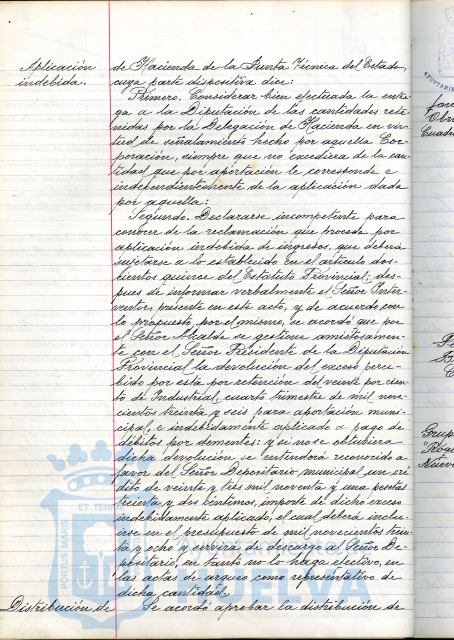 Aplicación
indebida.
de Hacienda de la Junta Técnica del Estado,
cuya parte dispositiva dice:
Primero. Considerar bien efectuada la entre-
ga a la Diputación de las cantidades rete-
nidas por la Delegación de Hacienda en vir-
tud de señalamiento hecho por aquella Cor-
poración, siempre que no excediera de la can-
tidad que por aportación le corresponde e
independientemente de la aplicación dada
por aquella:
Segundo. Declararse incompetente para
conocer de la reclamación que proceda por
aplicación indebida de ingresos, que deberá
sujetarse a lo establecido en el artículo dos-
cientos quince del Estatuto Provincial; des-
pues de informar verbalmente el Señor Inter-
ventor, presente en este acto, y de acuerdo con
lo propuesto por el mismo, se acordó que por
el Señor Alcalde se gestione amistosamen-
te con el Señor Presidente de la Diputación
Provincial la devolución del exceso perci-
bido por esta por retención del veinte por cien-
to de Industrial, cuarto trimestre de mil nove-
cientos treinta y seis para aportación muni-
cipal, e indebidamente aplicado a pago de
débitos por dementes: y si no se obtubiera
dicha devolución se entenderá reconocido a
favor del Señor Depositario municipal un cré-
dito de veinte y tres mil noventa y una pesetas
treinta y dos céntimos, importe de dicho exceso
indebidamente aplicado, el cual deberá inclu-
irse en el presupuesto de mil novecientos trein-
ta y ocho y servirá de descargo al Señor De-
positario, en tanto no lo haga efectivo, en
las actas de arqueo como representativo de
dicha cantidad.
Distribución de
Se acordó aprobar la distribución de
ET TERRA
PORTUS MARIS
Obra
Cuadr
Grup
Nuev